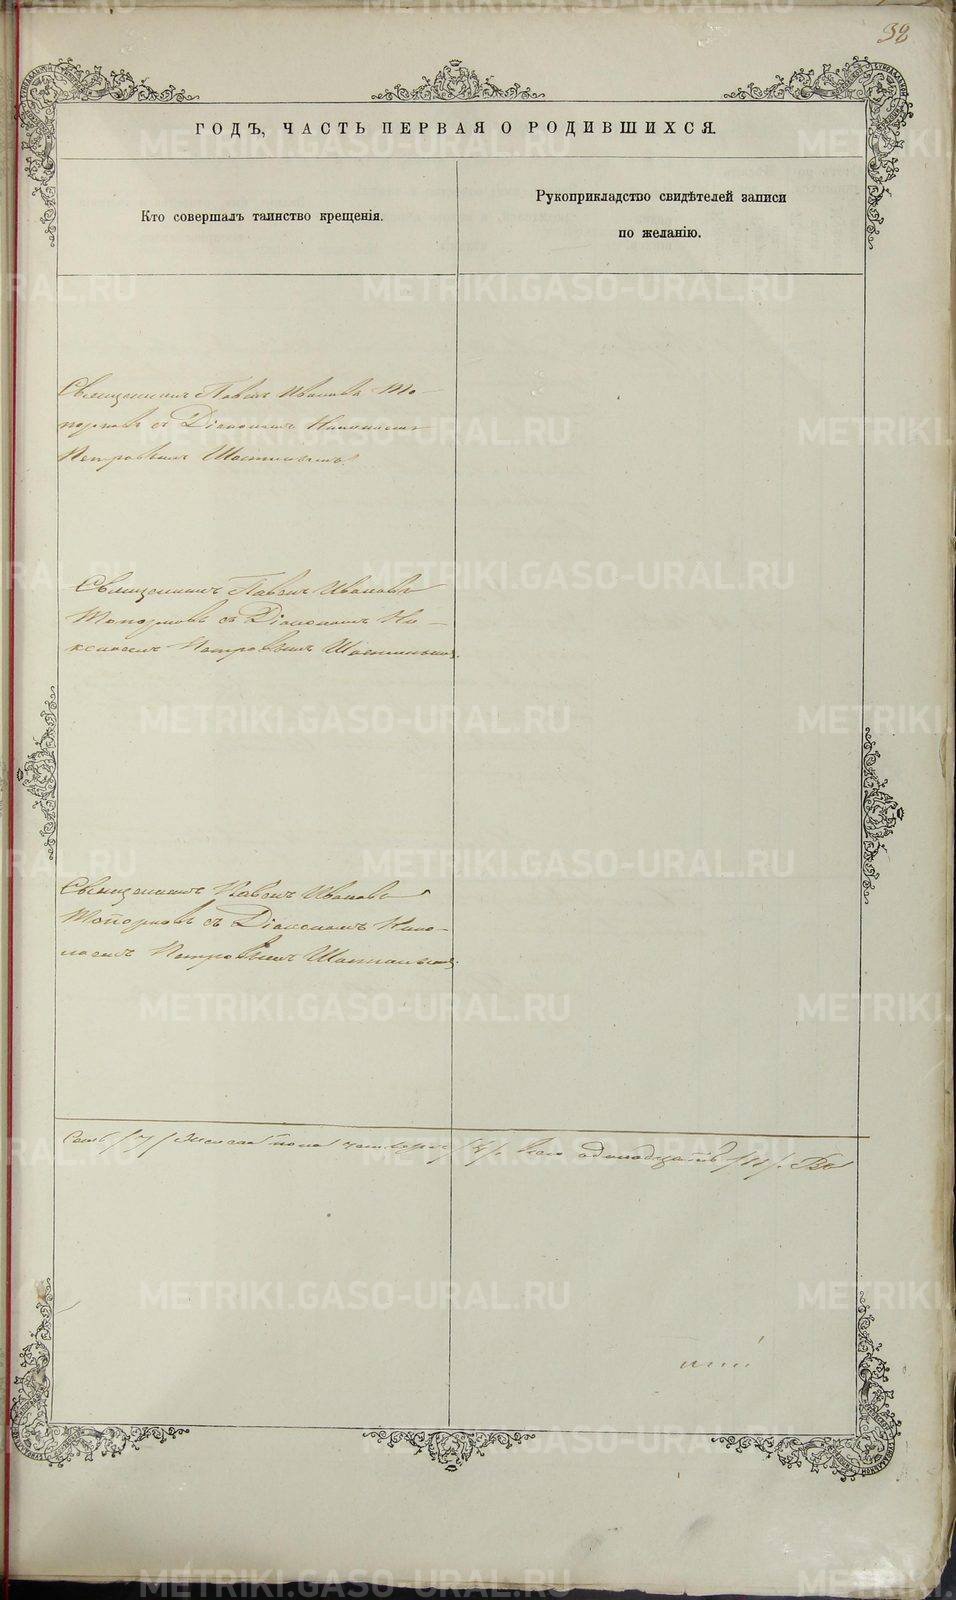 38
ГОДЪ, ЧАСТЬ ПЕРВАЯ О РОДИВШИХСЯ.
Кто совершалъ таинство крещенія.
Рукоприкладство свидѣтелей записи
по желанію.
Священникъ Павелъ Ивановъ То-
порковъ съ Діакономъ Николаемъ
Петровымъ
Священникъ Павелъ Ивановъ
Топорковъ съ Діакономъ Ни-
колаемъ Петровымъ
Священникъ Павелъ Ивановъ
Топорковъ съ Діакономъ Нико-
лаемъ Петровымъ
Семь /7/ Женска пола четверо /4/. Всего одинадцать /11/.
METRIKI.GASO-URAL.RU